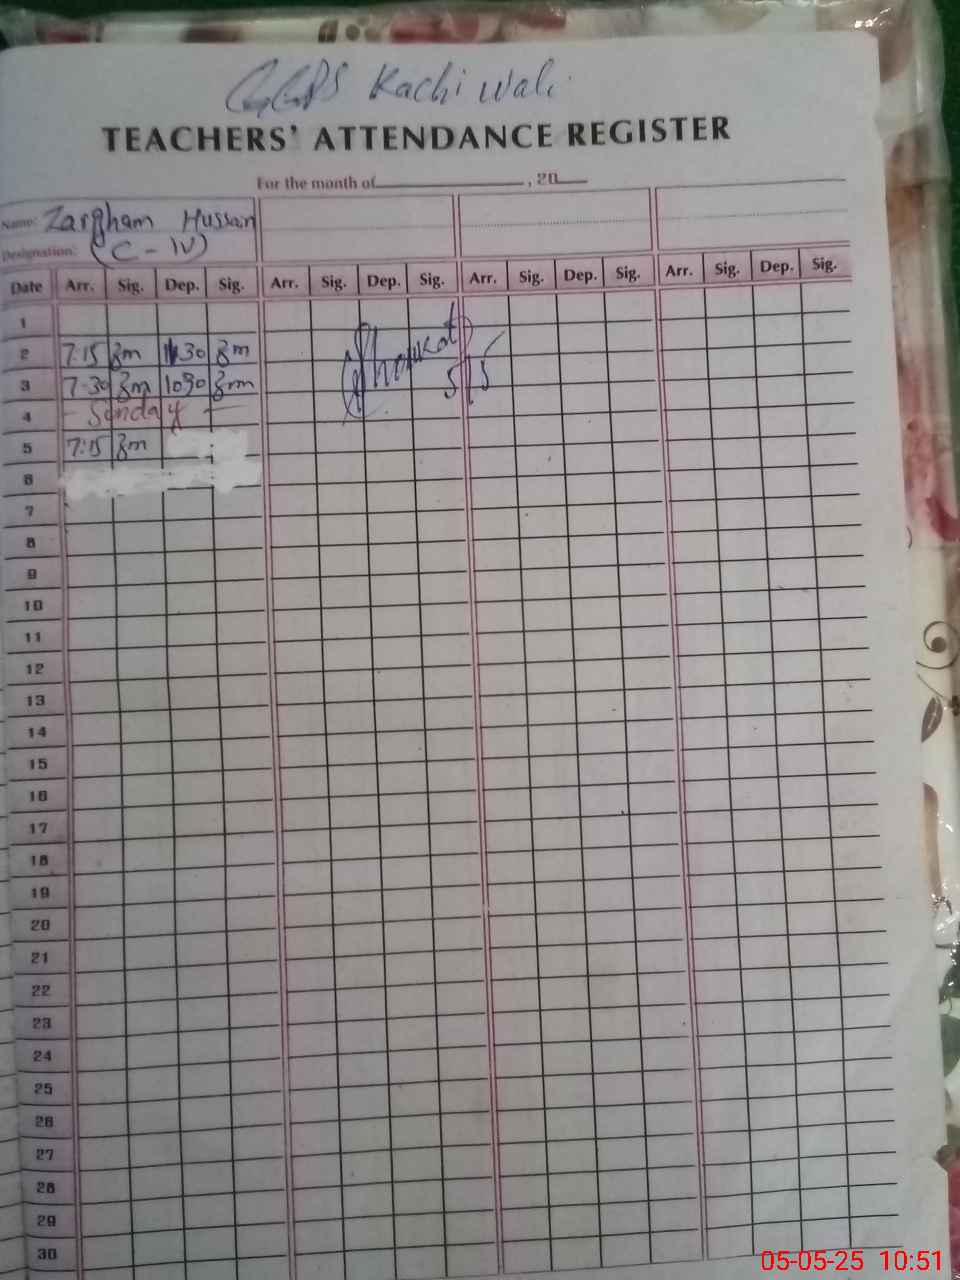 GGPS Kachi Wali
TEACHERS' ATTENDANCE REGISTER
For the month of , 20
Name: Zargham Hussain
Designation: (C-IV)
Date Arr. Sig. Dep. Sig. Arr. Sig. Dep. Sig. Arr. Sig. Dep. Sig. Arr. Sig. Dep. Sig.
1
2 7:15 30
3 7-30 1030
4 - Sunday -
5 7:15
Shoukat
5/5
6
7
8
9
10
11
12
13
14
15
16
17
18
19
20
21
22
23
24
25
26
27
28
29
30
05-05-25 10:51